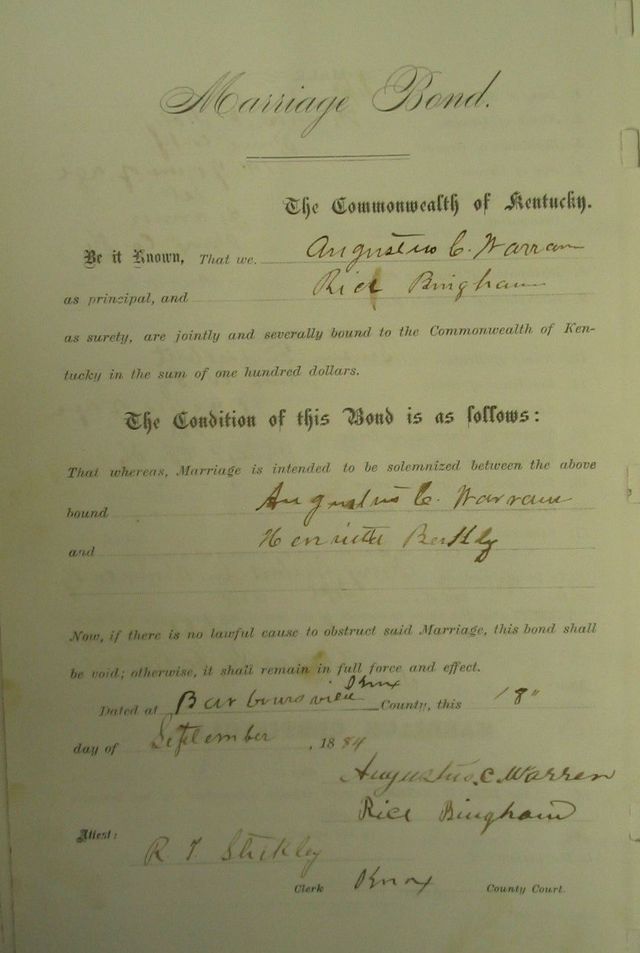 Marriage Bond.
The Commonwealth of Kentucky.
Be it Known, That we Augustus C. Warran
as principal, and Rice Bingham
as surety, are jointly and severally bound to the Commonwealth of Ken-
tucky in the sum of one hundred dollars.
The Condition of this Bond is as follows:
That whereas, Marriage is intended to be solemnized between the above
bound Augustus C. Warran
and
Now, if there is no lawful cause to obstruct said Marriage, this bond shall
be void; otherwise, it shall remain in full force and effect.
Dated at Barboursville Knox County, this 18"
day of September, 1884
Augustus. C. Warren
Rice Bingham
Attest:
R. T.
Clerk Knox County Court.